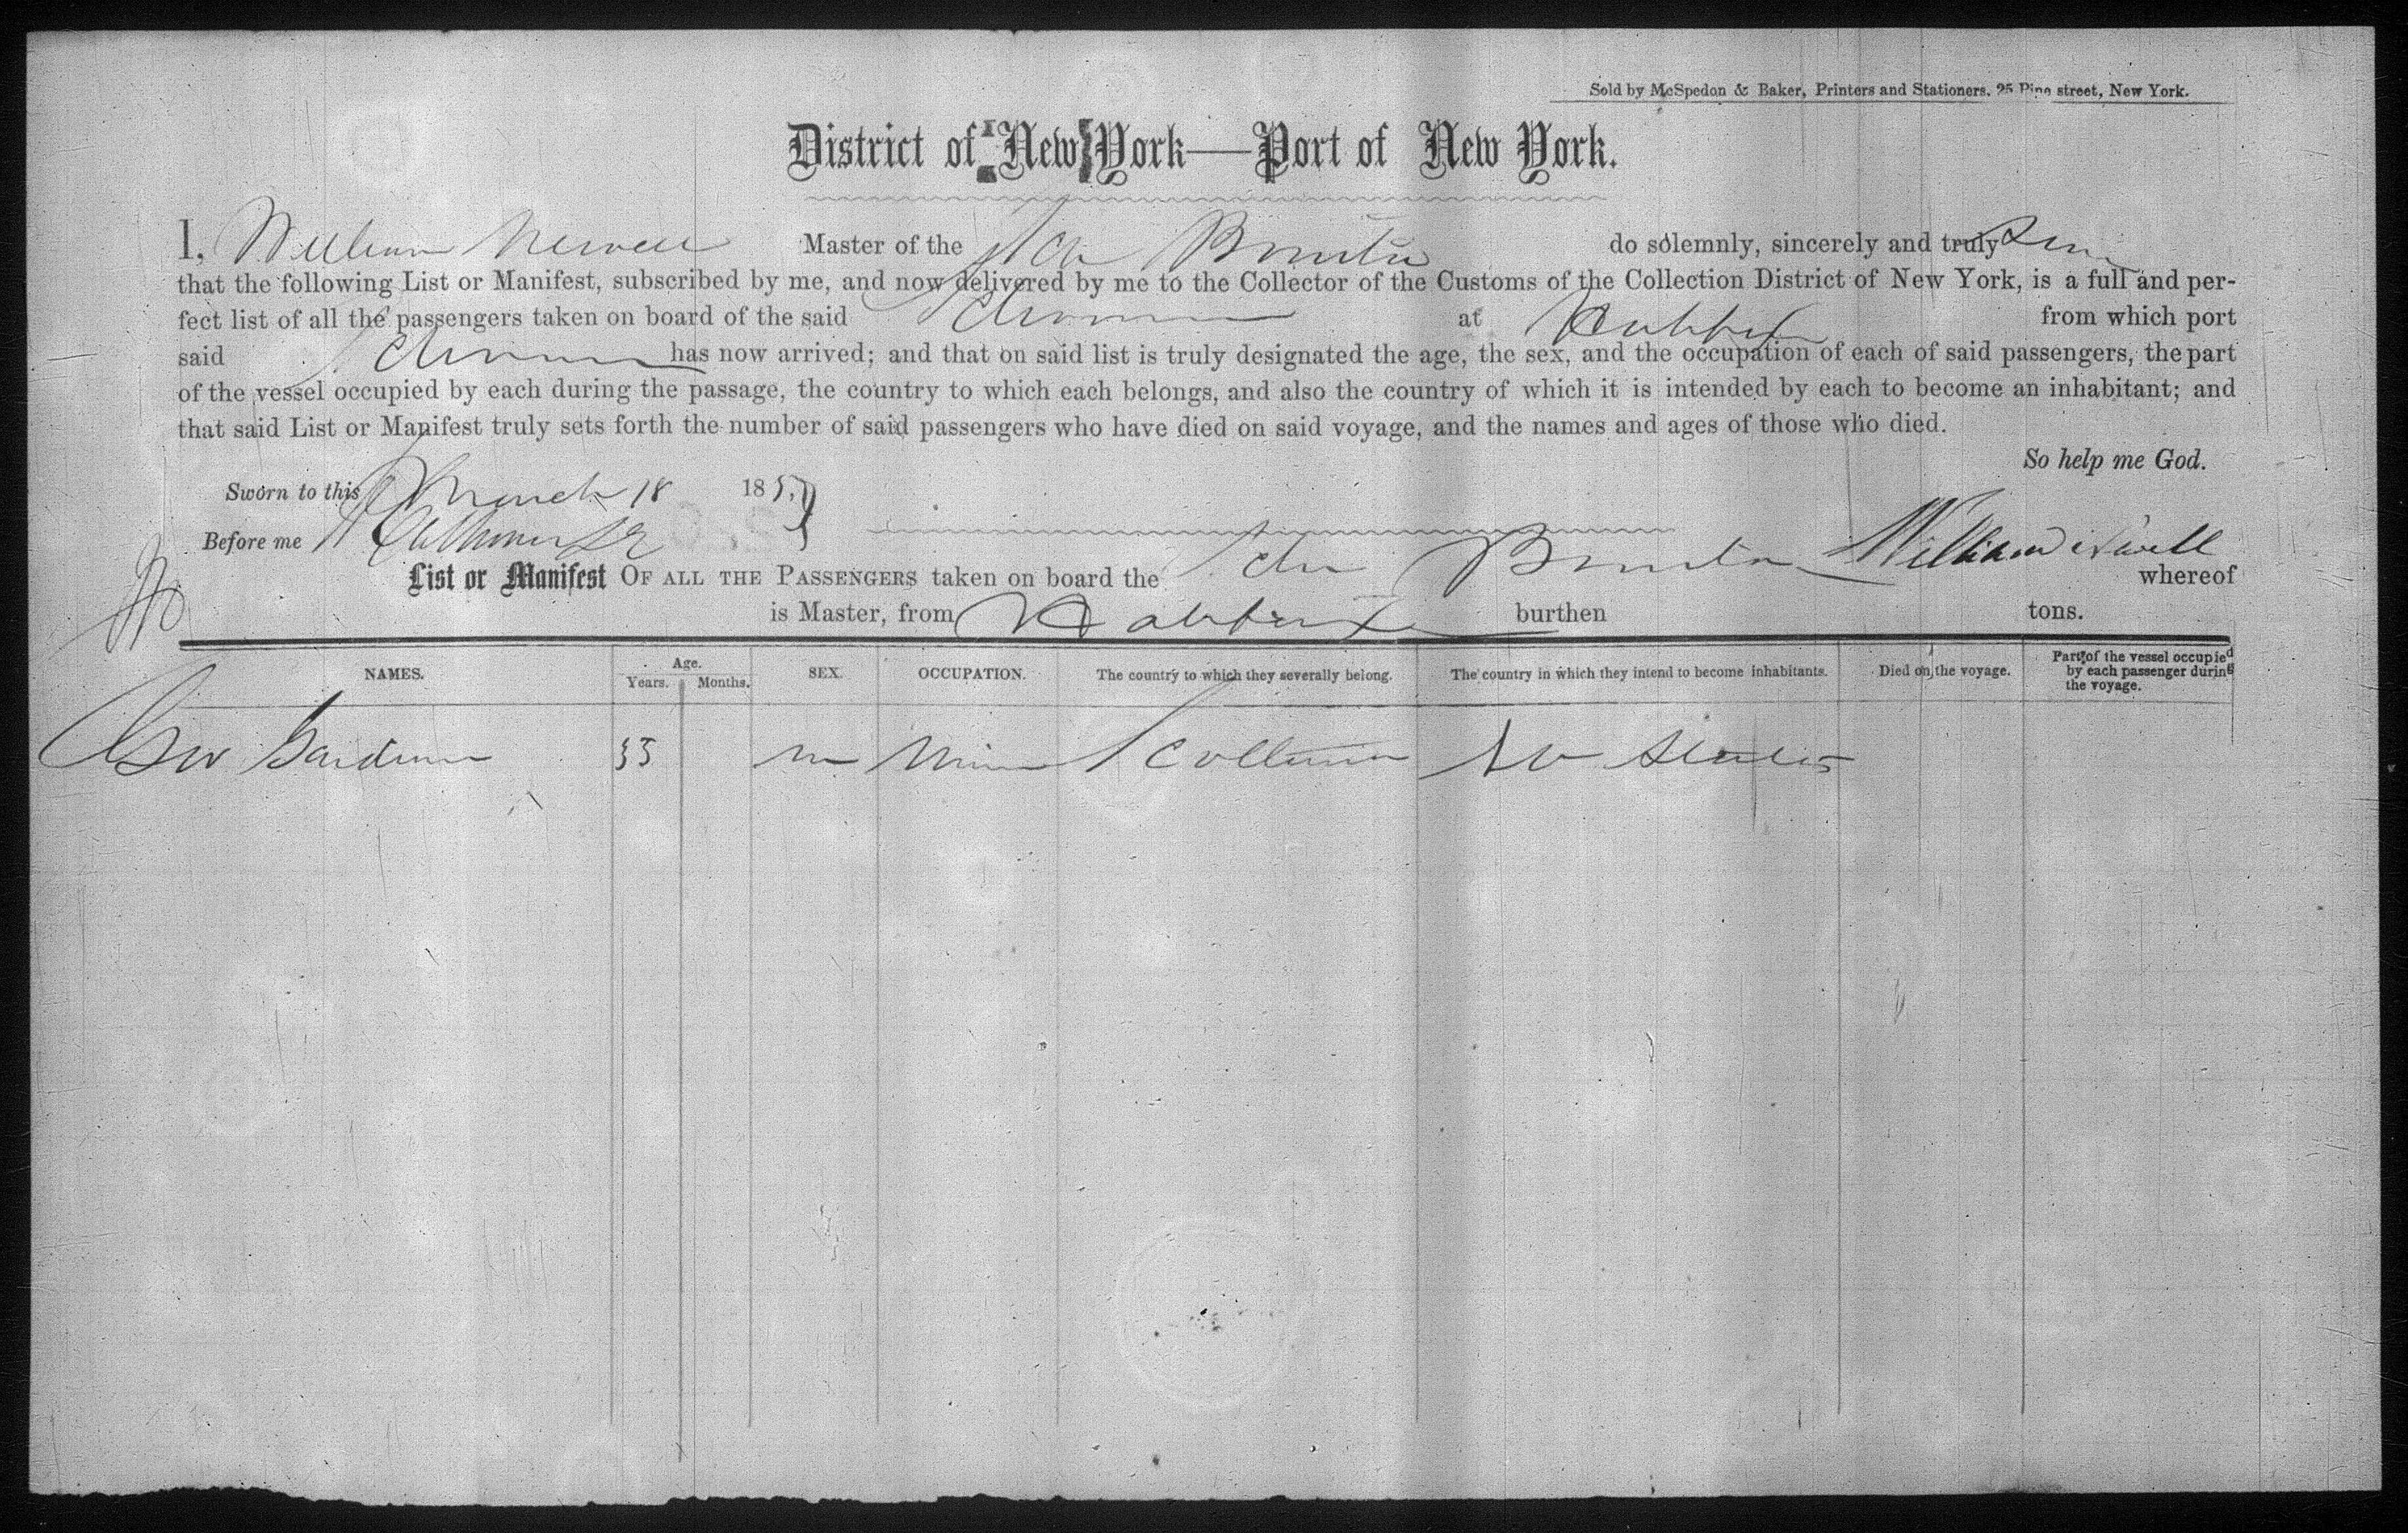 Sold by McSpedon & Baker, Printers and Stationers, 25 Pine street, New York.
District of New York—Port of New York.
I, William Newell Master of the Sch do solemnly, sincerely and truly
that the following List or Manifest, subscribed by me, and now delivered by me to the Collector of the Customs of the Collection District of New York, is a full and per-
fect list of all the passengers taken on board of the said Schooner at Halifax from which port
said Schooner has now arrived; and that on said list is truly designated the age, the sex, and the occupation of each of said passengers, the part
of the vessel occupied by each during the passage, the country to which each belongs, and also the country of which it is intended by each to become an inhabitant; and
that said List or Manifest truly sets forth the number of said passengers who have died on said voyage, and the names and ages of those who died.
So help me God.
Sworn to this March 18 185
Before me
William Newell
List or Manifest OF ALL THE PASSENGERS taken on board the Sch whereof
is Master, from Halifax burthen tons.
NAMES. Age. Years. Months. SEX. OCCUPATION. The country to which they severally belong. The country in which they intend to become inhabitants. Died on the voyage. Part of the vessel occupied by each passenger during the voyage.
Geo Gardner 35 m Miner Scotland U States